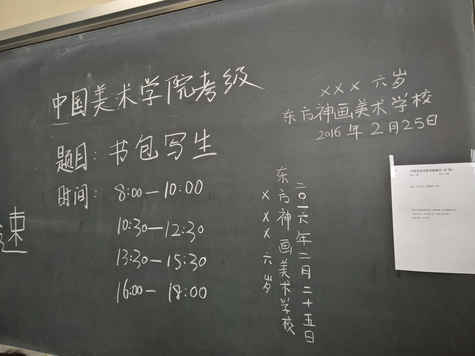 中国美术学院考级
题目：书包写生
时间：8:00—10:00
10:30—12:30
13:30—15:30
16:00—18:00
XXX 六岁
东方神画美术学校
2016年2月25日
二〇一六年二月二十五日
东方神画美术学校
XXX六岁
速